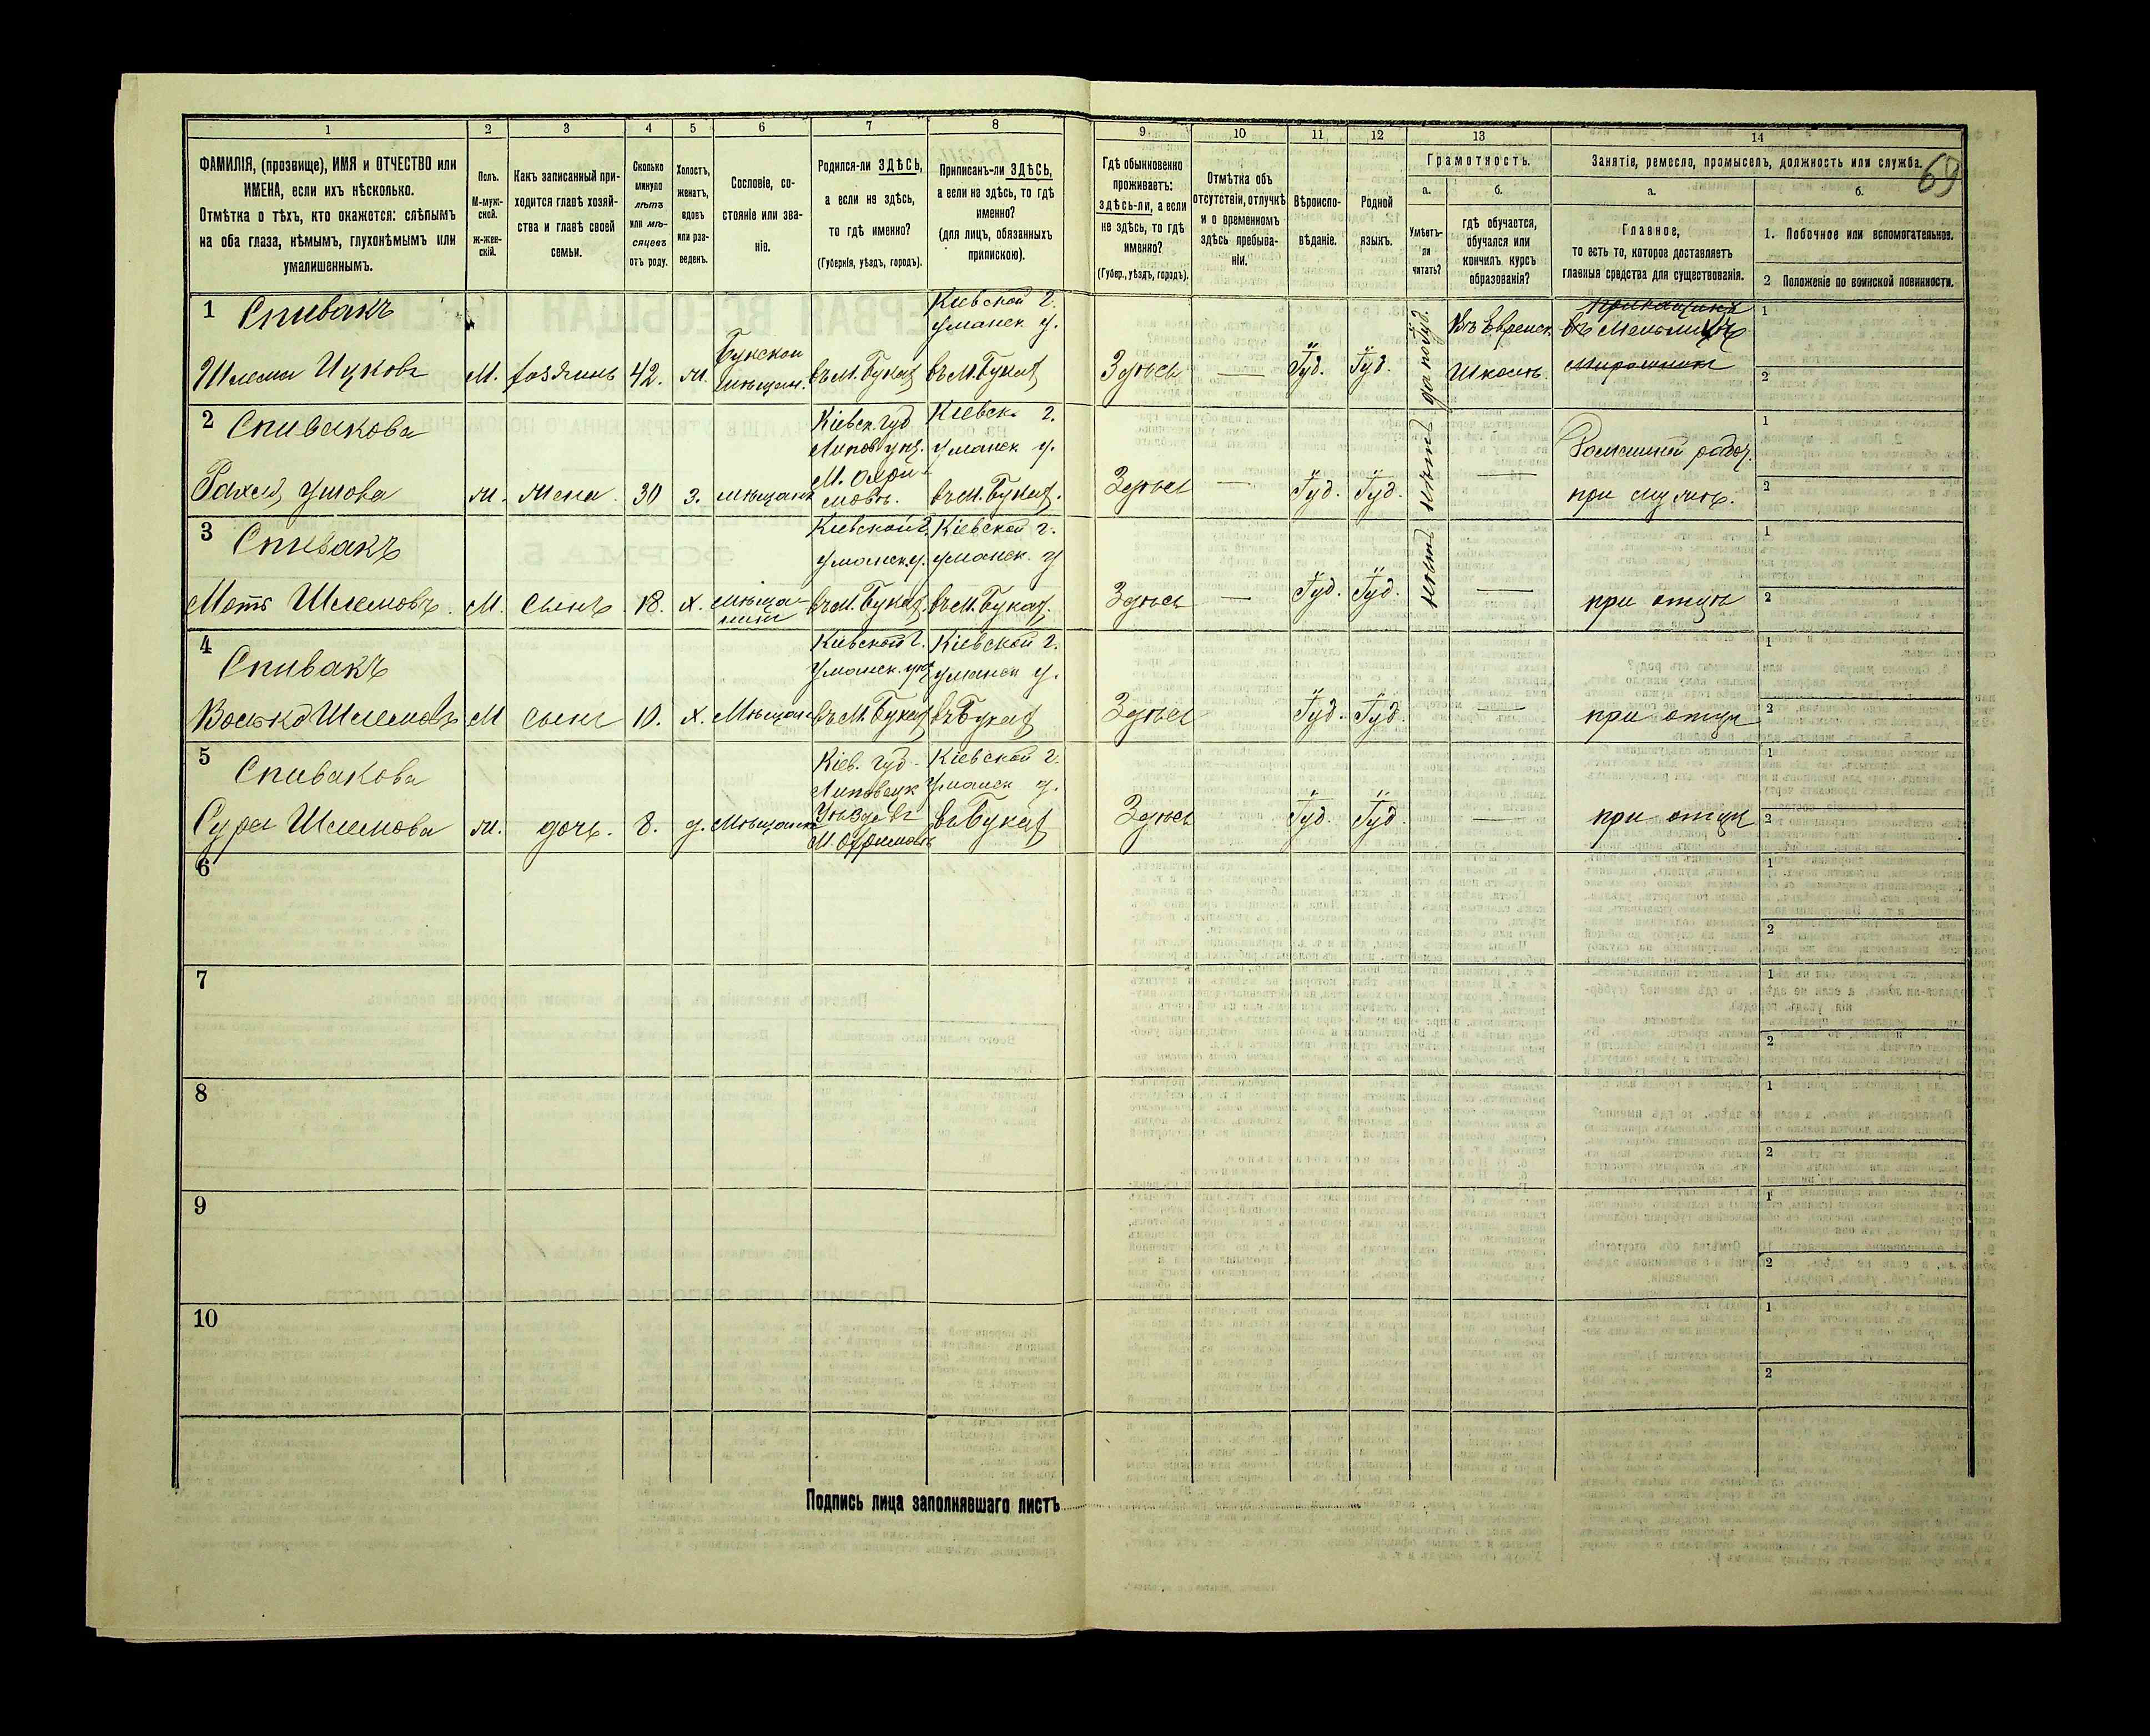 1 2 3 4 5 6 7 8 9 10 11 12 13 14
69
ФАМИЛІЯ, (прозвище), ИМЯ и ОТЧЕСТВО или
ИМЕНА, если ихъ нѣсколько.
Отмѣтка о тѣхъ, кто окажется: слѣпымъ
на оба глаза, нѣмымъ, глухонѣмымъ или
умалишеннымъ.
Полъ.
М-муж-
ской.
ж-жен-
скій.
Какъ записанный при-
ходится главѣ хозяй-
ства и главѣ своей
семьи.
Сколько
минуло
лѣтъ
или мѣ-
сяцевъ
отъ роду.
Холостъ,
женатъ,
вдовъ
или раз-
веденъ.
Сословіе, со-
стояніе или зва-
ніе.
Родился-ли ЗДѢСЬ,
а если не здѣсь,
то гдѣ именно?
(Губернія, уѣздъ, городъ).
Приписанъ-ли ЗДѢСЬ,
а если не здѣсь, то гдѣ
именно?
(для лицъ, обязанныхъ
припискою).
Гдѣ обыкновенно
проживаетъ:
здѣсь-ли, а если
не здѣсь, то гдѣ
именно?
(Губер., уѣздъ, городъ).
Отмѣтка объ
отсутствіи, отлучкѣ
и о временномъ
здѣсь пребыва-
ніи.
Вѣроиспо-
вѣданіе.
Родной
языкъ.
Грамотность.
а.
Умѣетъ-
ли
читать?
б.
гдѣ обучается,
обучался или
кончилъ курсъ
образованія?
Занятіе, ремесло, промыселъ, должность или служба.
а.
Главное,
то есть то, которое доставляетъ
главныя средства для существованія.
б.
1. Побочное или вспомогательное.
2 Положеніе по воинской повинности.
1 Спивакъ
Шлема Ицковъ
М. хозяинъ 42. ж.
Букскои
мѣщан.
въ М. Букахъ
Кіевской г.
Уманск у.
въ М. Букахъ
Здѣсь — Іуд. Іуд.
да по іуд.
въ Еврейск.
Школѣ.
прикащикъ
въ Мельницѣ
1
2
2 Спивакова
Рахиль
ж. жена 30 з. мѣщанк
Кіевск. губ
Липов уѣз.
М.
Кіевск. г.
Уманск у.
въ М. Букахъ.
Здѣсь — Іуд. Іуд. нѣтъ —
Домашний
при мужѣ.
1
2
3 Спивакъ
Мотъ Шлемовъ.
М. сынъ 18. х. мѣща-
нинъ
Кіевской г.
Уманск. у.
въ М. Букахъ
Кіевской г.
Уманск. у
въ М. Букахъ.
Здѣсь — Іуд. Іуд. нѣтъ —
при отцѣ
1
2
4
Спивакъ
Волько Шлемовъ
М сынъ 10. х. Мѣщан
Кіевской г.
Уманск. уѣз
въ М. Букахъ
Кіевской г.
Уманск у.
въ Букахъ
Здѣсь Іуд. Іуд. —
при отцѣ
1
2
5
Спивакова
Сура Шлемова
ж. дочь. 8. д. Мѣщанк
Кіев. губ.
Липовецк
Уѣзда въ
М.
Кіевской г.
Уманск у.
въ Букахъ
Здѣсь Іуд. Іуд. —
при отцѣ
1
2
6
1
2
7
1
2
8
1
2
9
1
2
10
1
2
Подпись лица заполнявшаго листъ